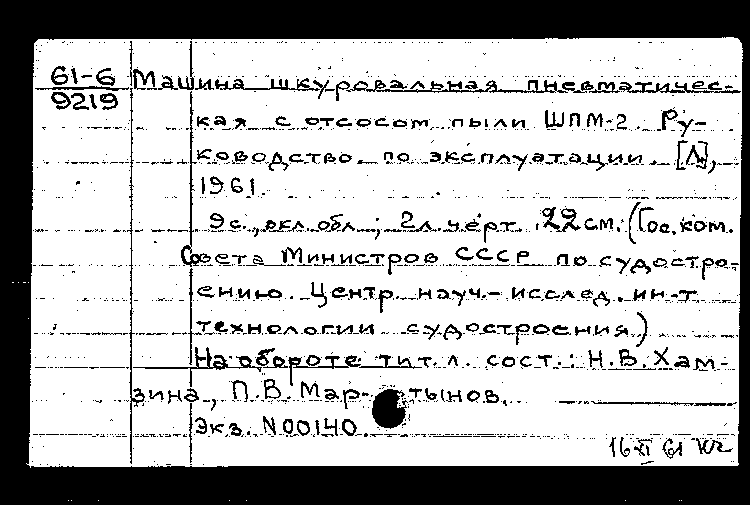 61-6 Машина шкуровальная пневматичес-
9219
кая с отсосом пыли ШПМ-2. Ру-
ководство по эксплуатации. [Л],
1961.
9с., вкл. обл.; 2л. черт. 22см. (Гос. ком.
Совета Министров СССР по судостро-
ению. Центр. науч.-исслед. ин-т
технологии судостроения)
На обороте тит. л. сост.: Н.В. Хам-
зина, П.В. Мар-тынов.
Экз. N00140.
16 XI 61